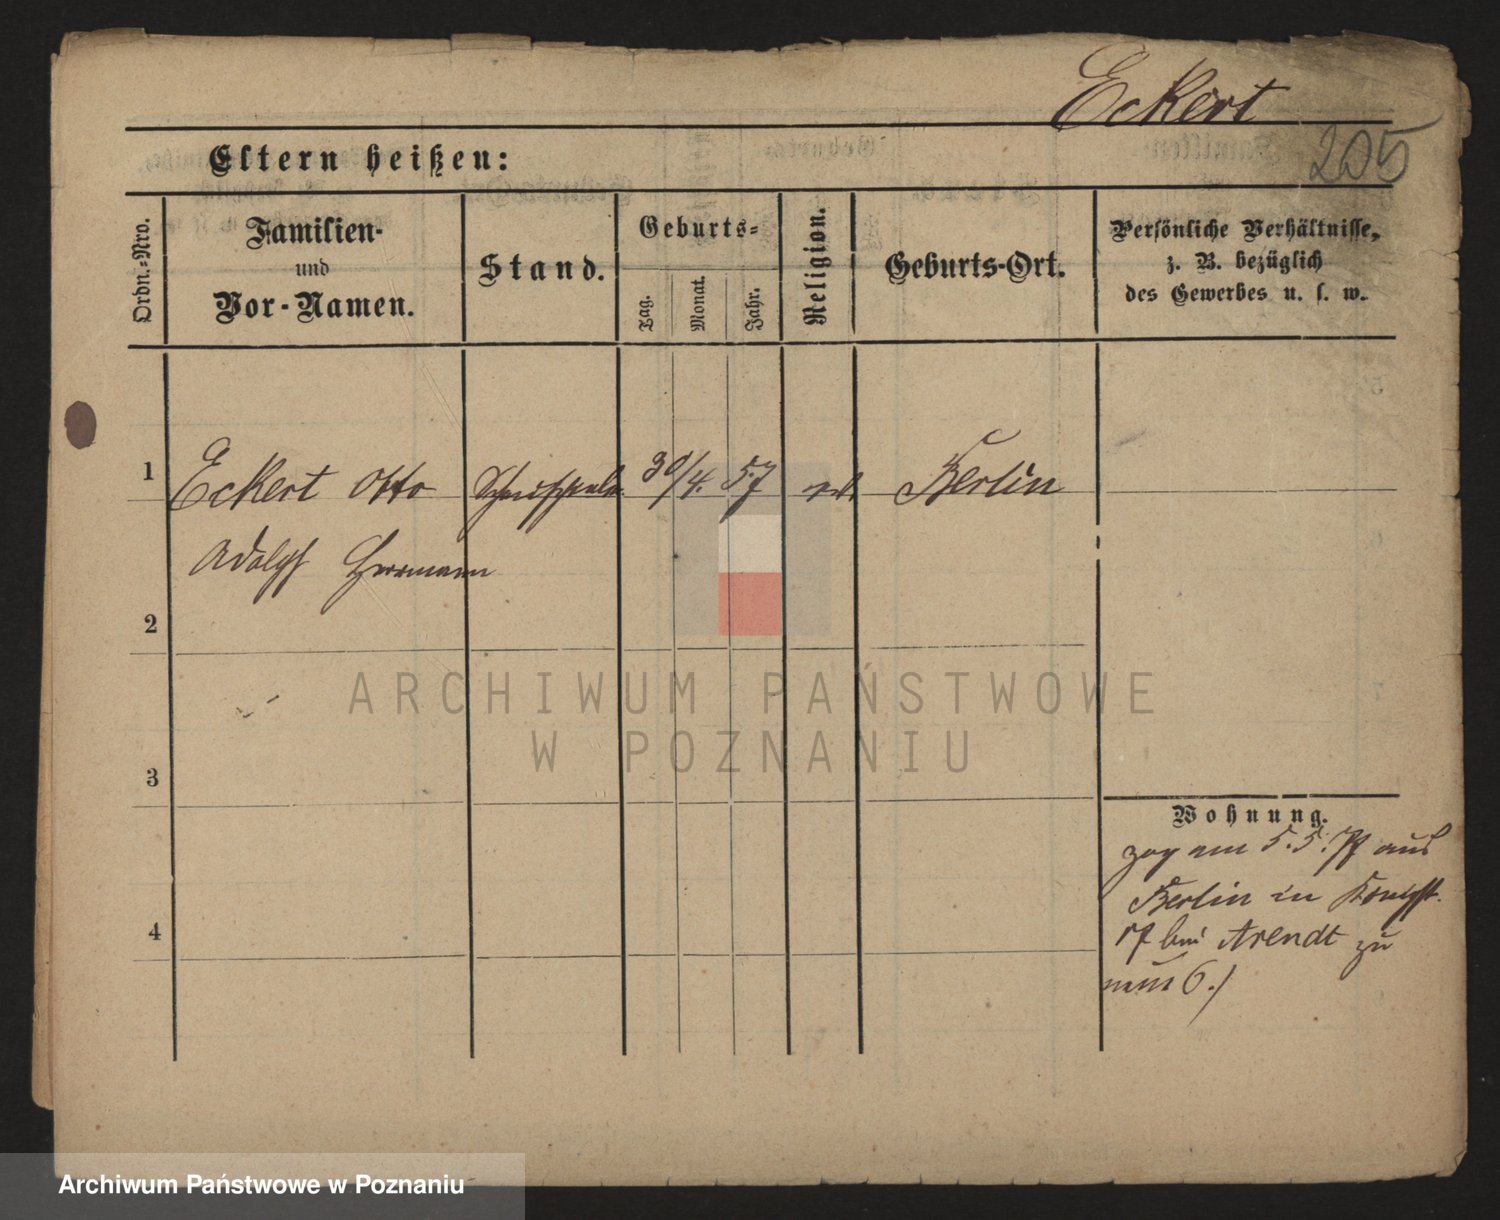 Eckert
205
Eltern heißen:
Ordn.-Nro.
Familien-
und
Vor-Namen.
Stand.
Geburts-
Tag.
Monat.
Jahr.
Religion.
Geburts-Ort.
Persönliche Verhältnisse,
z. B. bezüglich
des Gewerbes u. s. w.
1
Eckert Otto
30/4. 57
Berlin
Adolph Herrmann
2
ARCHIWUM PAŃSTWOWE
W POZNANIU
3
Wohnung.
zog am 5.5. aus
Berlin in Königst.
bei Arendt zu
4
Archiwum Państwowe w Poznaniu